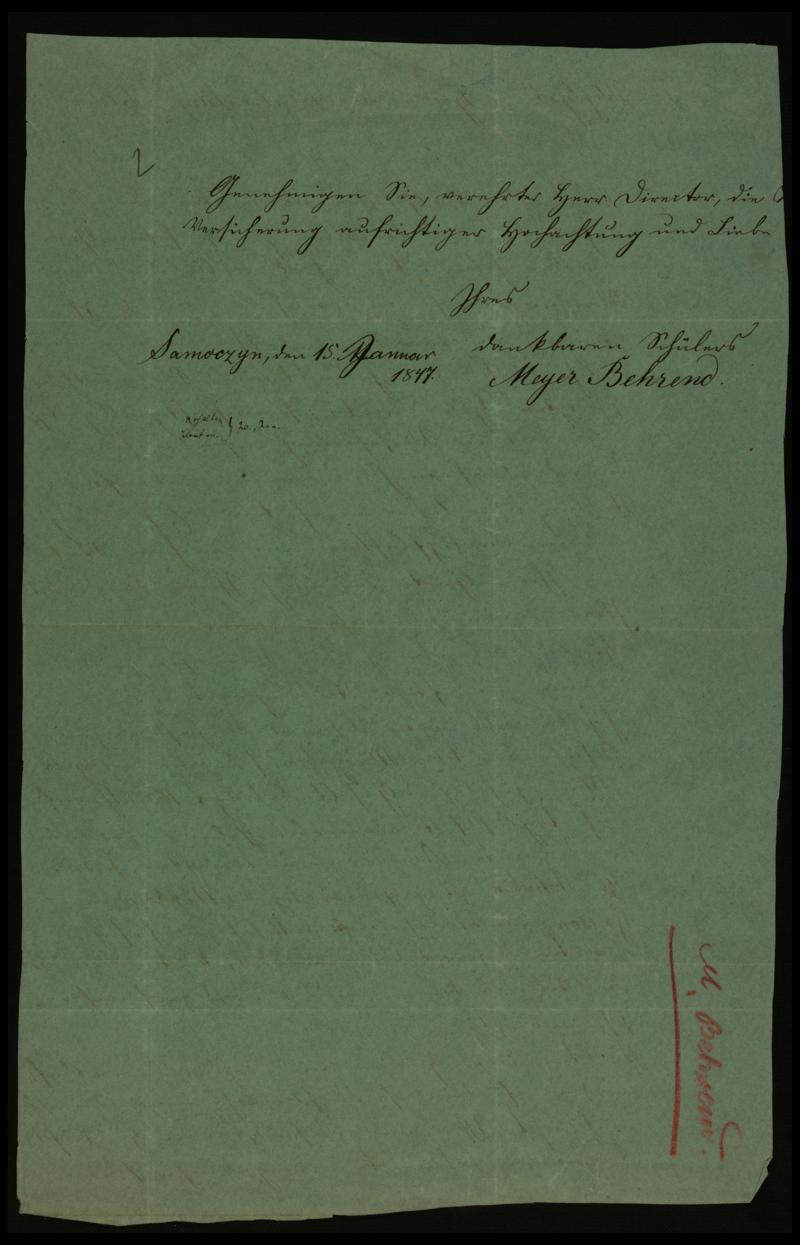 2
Genehmigen Sie, verehrter Herr Director, die
Versicherung aufrichtiger Hochachtung und Liebe
Ihres
Samoczyn, den 15. Januar dankbaren Schülers
1847. Meyer Behrend.
20. Jan.
M. Behrend.